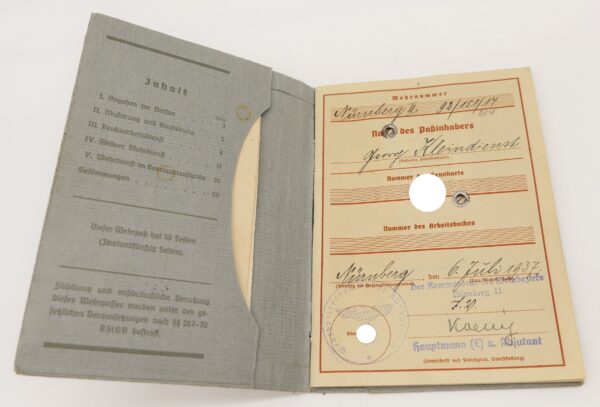 Inhalt
Seite
I. Angaben zur Person 3
II. Musterung und Aushebung 5
III. Reichsarbeitsdienst
IV. Aktiver Wehrdienst
V. Wehrdienst im Beurlaubtenstande
Bestimmungen 50
Dieser Wehrpaß hat 52 Seiten
(Zweiundfünfzig Seiten).
Fälschung und mißbräuchliche Benutzung
dieses Wehrpasses werden unter den ge-
setzlichen Voraussetzungen nach §§ 267-70
RStGB bestraft.
Wehrnummer
Nürnberg II 92/157/14
Name des Paßinhabers
Georg Kleindienst
Nummer der Kennkarte
Nummer des Arbeitsbuches
Nürnberg, den 6. Juli 1937.
Der Kommandeur des Wehrbezirks
Nürnberg II
Hauptmann (E) u. Adjutant
(Unterschrift und Dienstgrad, Dienststellung)